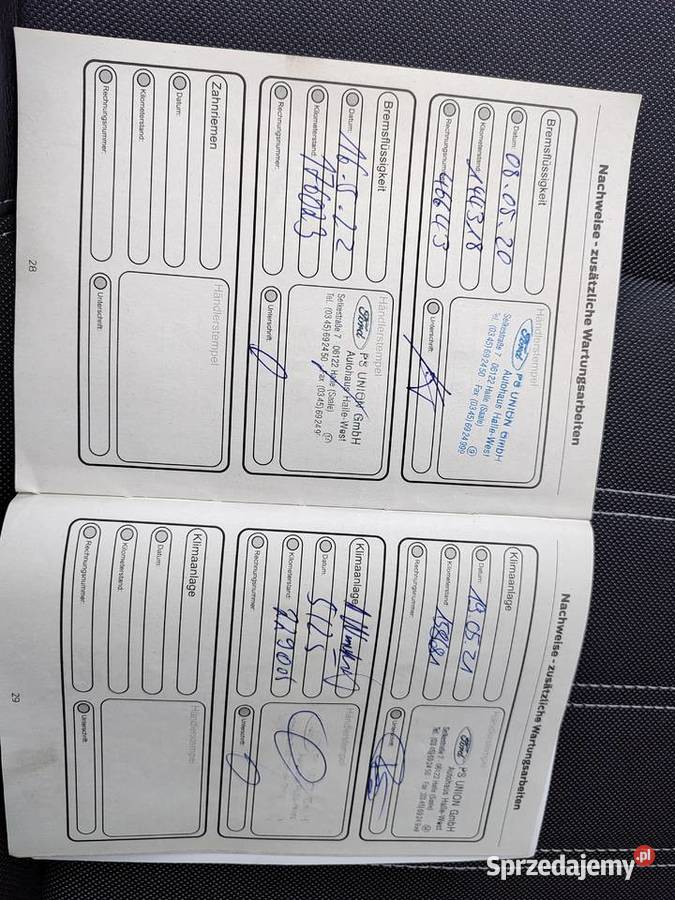 Nachweise - zusätzliche Wartungsarbeiten
Bremsflüssigkeit
Datum: 08.05.20
Kilometerstand: 144318
Rechnungsnummer: 46643
Händlerstempel
Ford PS UNION GmbH
Autohaus Halle-West
Selkestraße 7 · 06122 Halle (Saale)
Tel. (03 45) 69 24 50 · Fax (03 45) 69 24 999
Unterschrift:
Bremsflüssigkeit
Datum: 16-5-22
Kilometerstand:
Rechnungsnummer:
Händlerstempel
Ford PS UNION GmbH
Autohaus Halle-West
Selkestraße 7 · 06122 Halle (Saale)
Tel. (03 45) 69 24 50 · Fax (03 45) 69 24 9
Unterschrift:
Zahnriemen
Datum:
Kilometerstand:
Rechnungsnummer:
Händlerstempel
Unterschrift:
28
Nachweise - zusätzliche Wartungsarbeiten
Klimaanlage
Datum: 19.05.21
Kilometerstand:
Rechnungsnummer:
Händlerstempel
Ford PS UNION GmbH
Autohaus Halle-West
Selkestraße 7 · 06122 Halle (Saale)
Tel. (03 45) 69 24 50 · Fax (03 45) 69 24 999
Unterschrift:
Klimaanlage
Datum: 5/25
Kilometerstand:
Rechnungsnummer:
Händlerstempel
Unterschrift:
Klimaanlage
Datum:
Kilometerstand:
Rechnungsnummer:
Händlerstempel
Unterschrift:
29
Sprzedajemy.pl